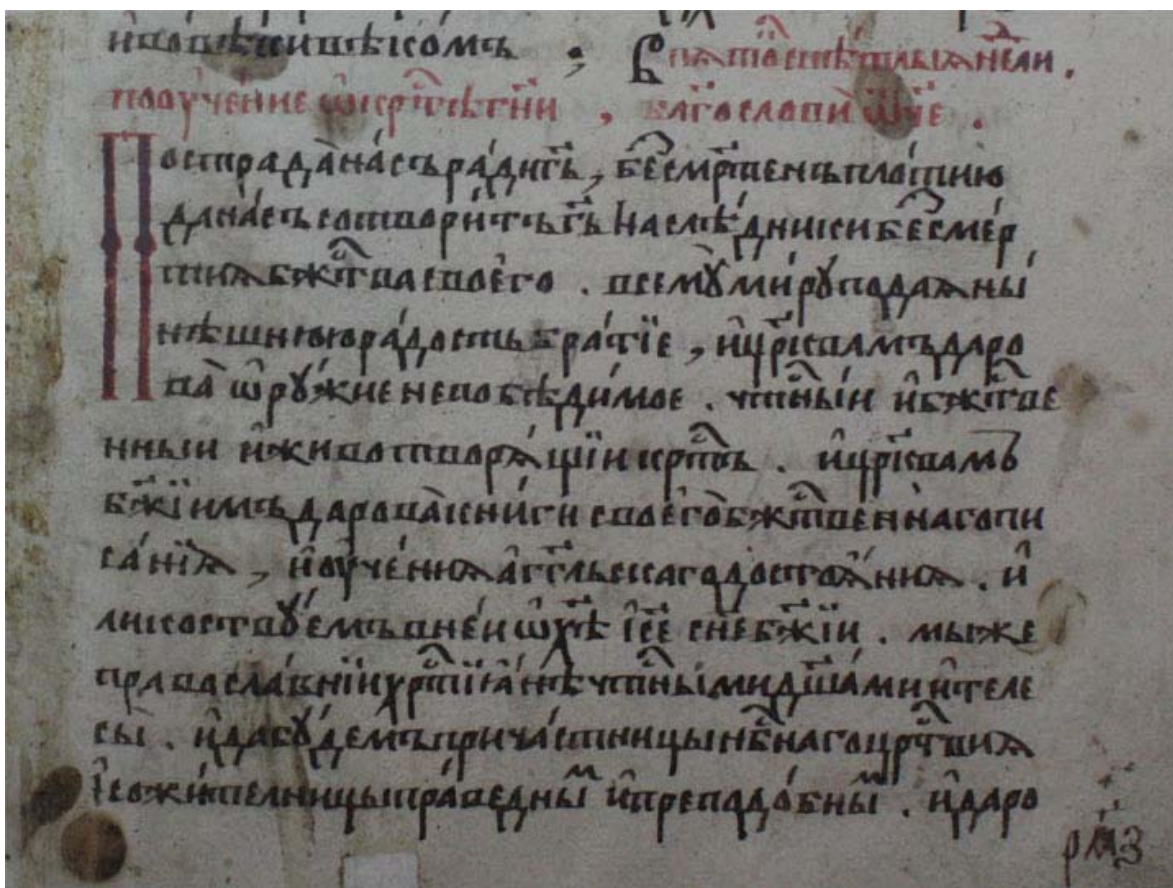 и во вѣки вѣкомъ ; В пѧто҇ свѣтлыѧ нє҇ли .
поꙋче́ниє ѡ кр҇тѣ г҇ни , бл҃гослови ѿчє .
Пострада̀ на́съ ра́ди гь҇ , бєсмр҇тєнъ пло́тию
да на́съ сотвори́тъ гь҇ наслѣ́дники бєсмє́р
тиѧ бж҇тва своєго̀ . всємꙋ̀ ми́рꙋ подаѧ ны́
нѣшнюю ра́дость бра́тїє , и҆ цр҇квамъ даро
ва̀ ѡ҆рꙋ́жиє нєпобѣди́моє . чт҇ны́и и҆ бж҇твє
нныи и҆ животворѧ́щїи кр҇тъ . и҆ цр҇квамъ
бж҃їимъ дарова̀ кни́ги своєго̀ бж҇твєннаго пи
са́нїѧ , и҆ ꙋчє́ниѧ а҆гг҃льскаго достоѧ́ниѧ . и҆
ликоствꙋ́ємъ в нє́и ѡ҆ хѣ҇ і҆сє҇ снє бж҃їи . мы жє
правосла́внїи хр҇тїа́нє чт҇ны́ми дш҃а́ми и҆ тєлє
сы̀ . и҆ да бꙋ́дємъ прича́стницы нб҇наго цр҇твиѧ
і҆ сожи́тєлницы пра́вєдны м и҆ прєподо́бны м . и҆ даро
рм҃з